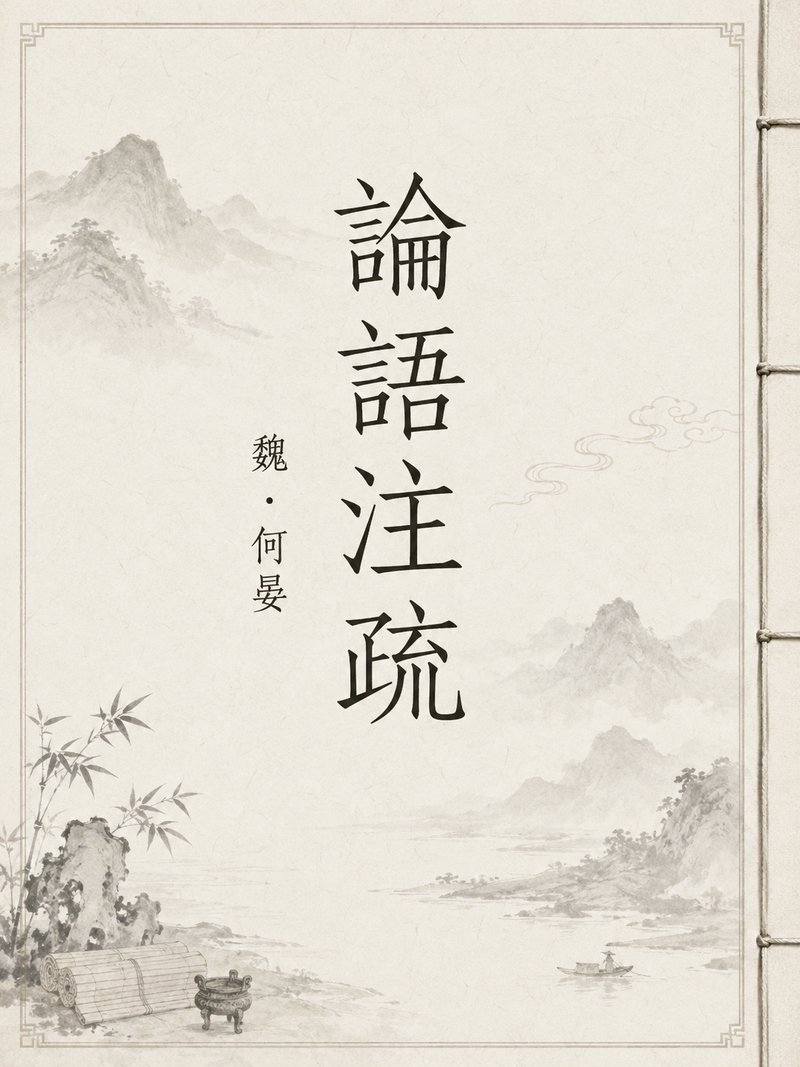 論語注疏
魏·何晏